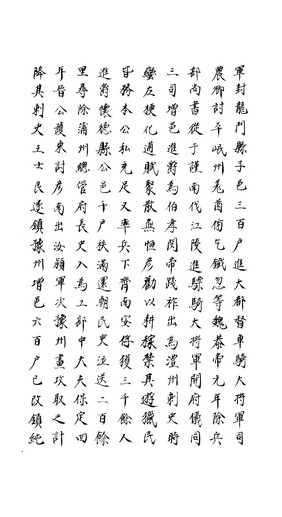 軍封龍門縣子邑三百户進大都督車騎大將軍司
農卿討平岷州羌酋傍乞鐵忽等魏恭帝元年除兵
部尚書從于謹南伐江陵進驃騎大將軍開府儀同
三司增邑進爵為伯孝閔帝踐祚出為澧州刺史時
蠻左梗化逋賦聚散無恒彦勸以耕稼禁其遊獵民
皆務本公私充足又率兵下齊南安得獲三千餘人
進爵懷德縣公邑千户秩滿還朝民吏泣送二百餘
里尋除蒲州總管府長史入為工部中大夫保定四
年晉公護東討彦南出汝潁軍次豫州畫攻取之計
降其刺史王士良遂鎮豫州增邑六百户已改鎮純